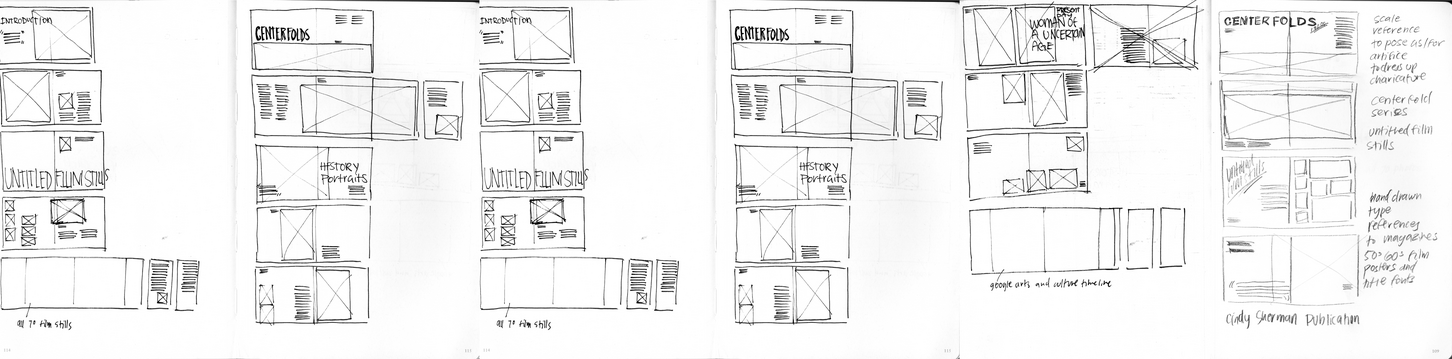 INTRODUCTION
UNTITLED FILM STILLS
all 70 film stills
CENTERFOLDS
HISTORY
Portraits
INTRODUCTION
UNTITLED FILM STILLS
all 70 film stills
CENTERFOLDS
HISTORY
Portraits
PRESENT
WOMAN OF
A UNCERTAIN
AGE
google arts and culture timeline
CENTERFOLDS
untitled
film stills
scale
reference
to pose as/for
artifice
to dress up
charicature
centerfold
series
untitled film
stills
hand drawn
type
references
to magazines
50s 60s film
posters and
title fonts
Cindy Sherman Publication